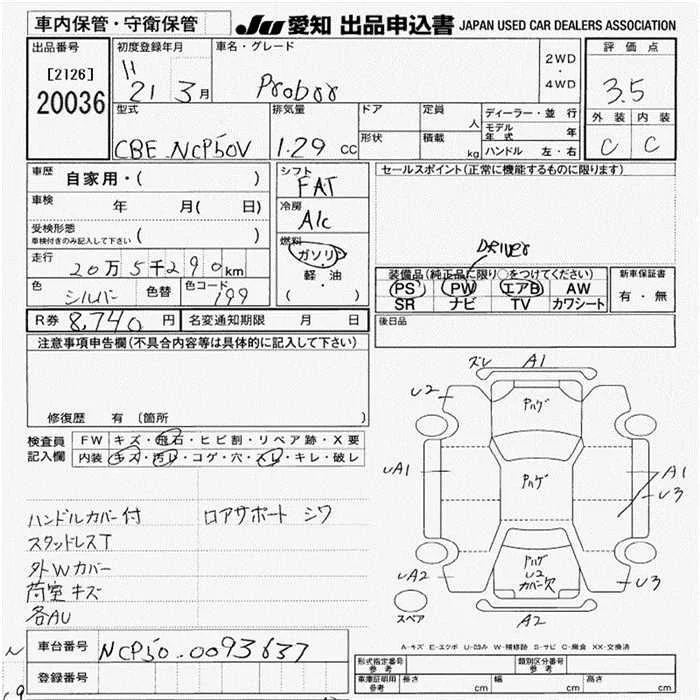 車内保管・守衛保管
JU 愛知 出品申込書 JAPAN USED CAR DEALERS ASSOCIATION
出品番号
[2126]
20036
初度登録年月
H
21 3月
車名・グレード
Probox
2WD
・
4WD
評価点
3.5
外装 内装
C C
型式
CBE-NCP50V
排気量
1.29 cc
ドア
形状
定員
人
積載
kg
ディーラー・並行
モデル年式 年
ハンドル 左・右
車歴 自家用・( )
車検 年 月( 日)
受検形態
車検付きのみ記入して下さい ( )
走行 20万5千290km
色 シルバー 色替 色コード 199
R券 8,740円 名変通知期限 月 日
シフト
FAT
冷房
A/c
燃料
ガソリン
軽・油
( ・ )
セールスポイント(正常に機能するものに限ります)
DRIVER
装備品(純正品に限り○をつけてください)
PS PW エアB AW
SR ナビ TV カワシート
新車保証書
有・無
後日品
注意事項申告欄(不具合内容等は具体的に記入して下さい)
修復歴 有 〔箇所 〕
検査員
記入欄
FW キズ・飛石・ヒビ割・リペア跡・X要
内装 キズ・汚レ・コゲ・穴・スレ・キレ・破レ
ハンドルカバー付 ロアサポート シワ
スタッドレスT
外Wカバー
荷室キズ
各AU
ズレ A1
U2
ハゲ
UA1
ハゲ
A1
U3
UA2
ハゲ
U2
カバー欠
U3
スペア
A2
A-キズ E-エクボ U-凹み W-補修跡 S-サビ C-腐食 XX-交換済
車台番号 NCP50-0093637
登録番号
形式指定番号
参考
類別区分番号
参考
車庫証明用
参考
長さ cm 幅 cm 高さ cm